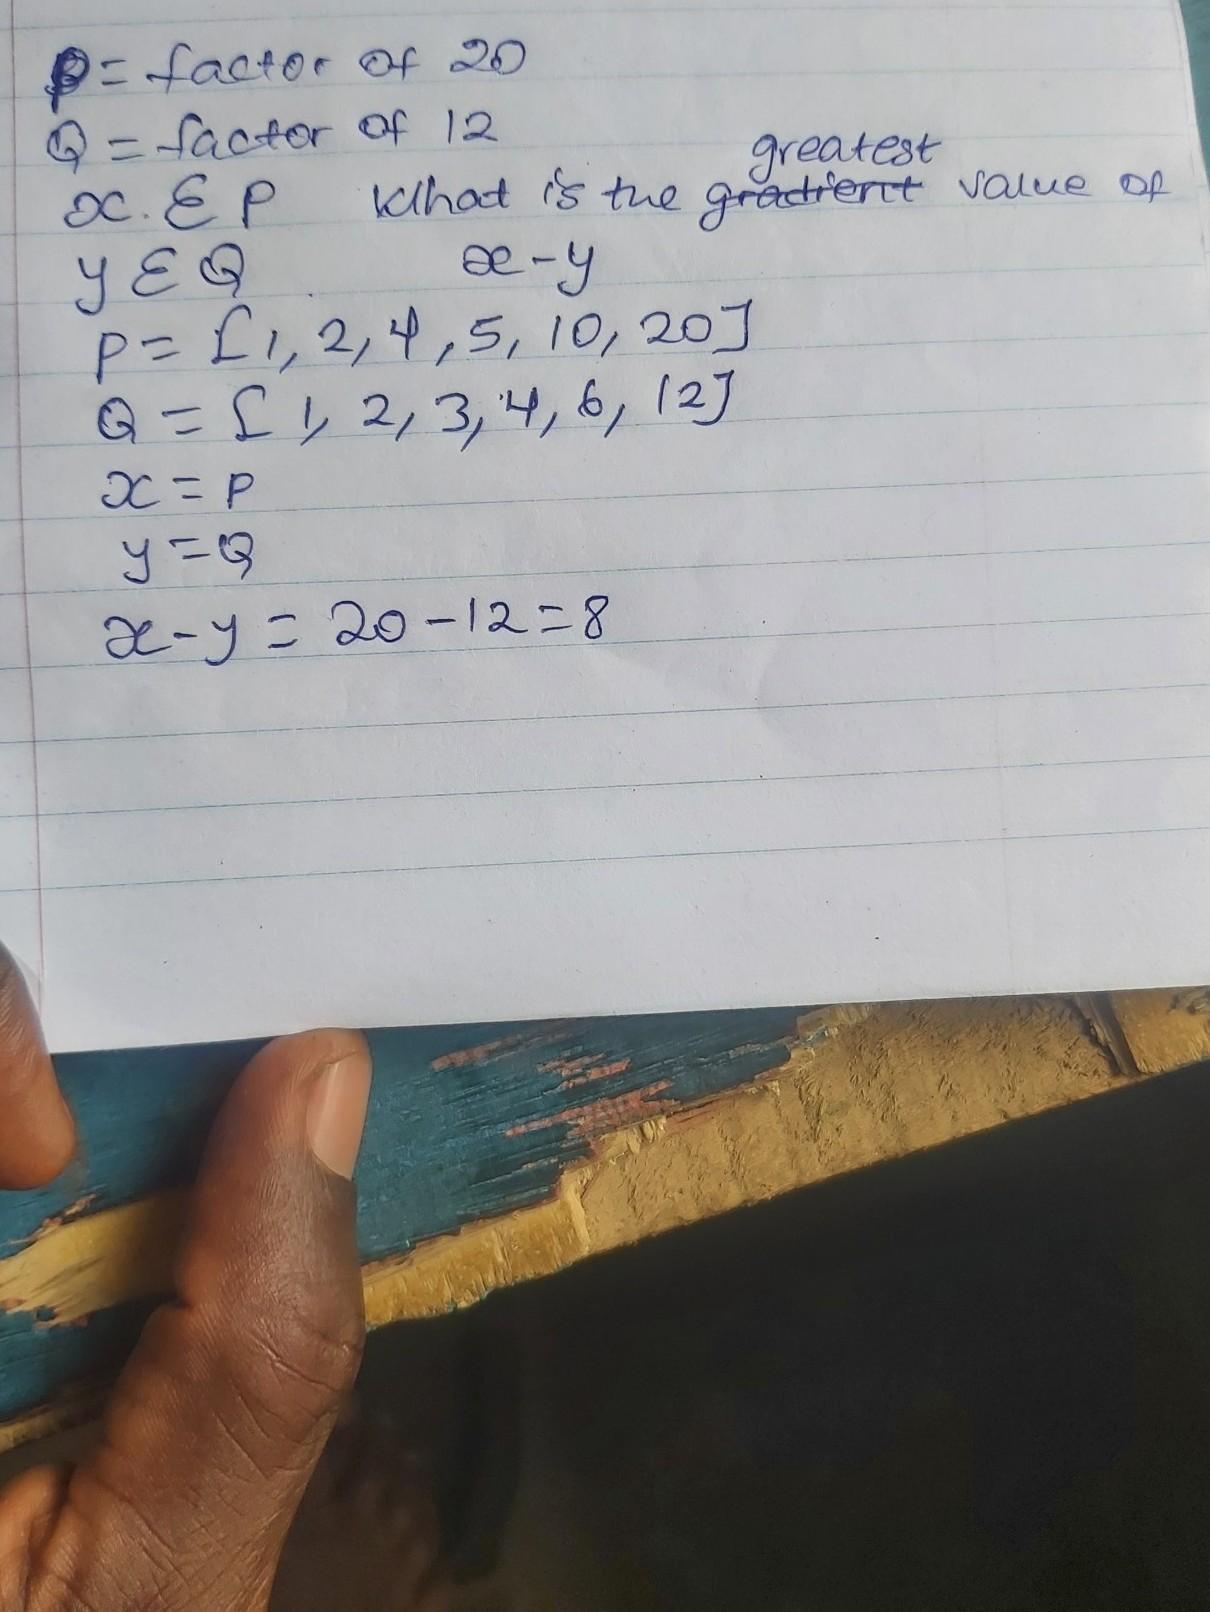 P = factor of 20
Q = factor of 12
greatest
x. ∈ P What is the gradient value of
y ∈ Q . x - y
P = [1, 2, 4, 5, 10, 20]
Q = [1, 2, 3, 4, 6, 12]
x = P
y = Q
x - y = 20 - 12 = 8